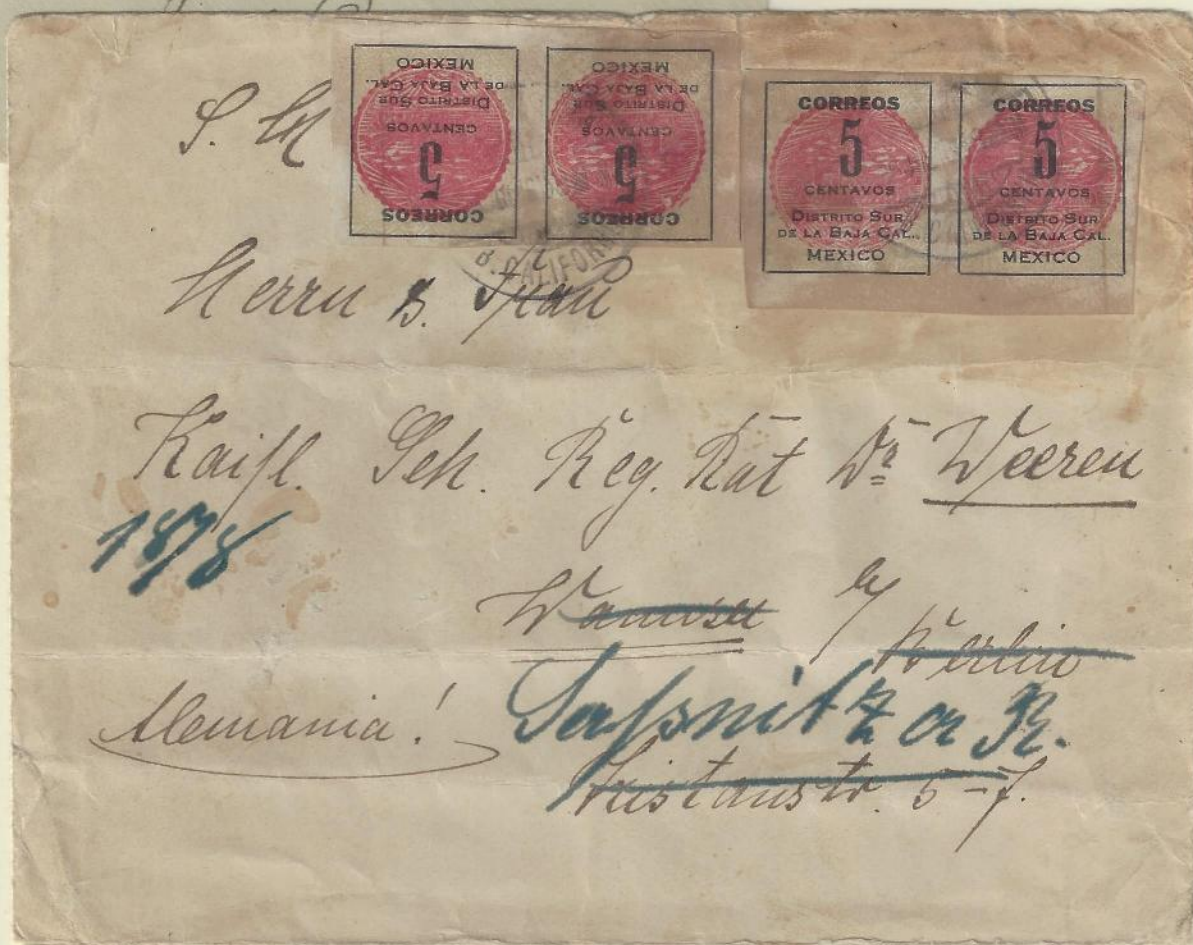 CORREOS
5
CENTAVOS
DISTRITO SUR
DE LA BAJA CAL.
MEXICO
CORREOS
5
CENTAVOS
DISTRITO SUR
DE LA BAJA CAL.
MEXICO
CORREOS
5
CENTAVOS
DISTRITO SUR
DE LA BAJA CAL.
MEXICO
CORREOS
5
CENTAVOS
DISTRITO SUR
DE LA BAJA CAL.
MEXICO
B. CALIFORNIA
S. H
Herrn
Kaisl. Geh. Reg. Rat Dr Weeren
1878
Wannsee b/ Berlin
Alemania! Saßnitz a R.
Tristanstr. 5-7.